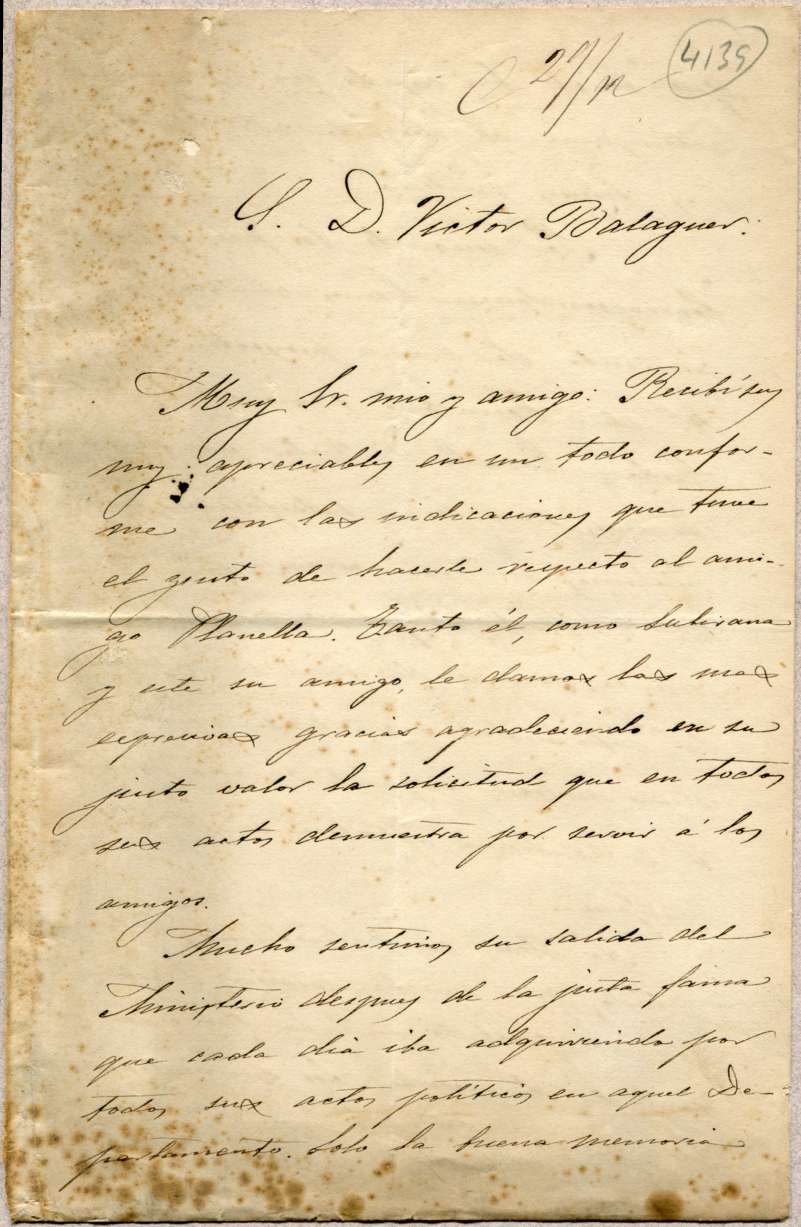 27/12
4139
S. D. Victor Balaguer.
Muy Sr. mio y amigo: Recibí sus
muy apreciables en un todo confor-
me con las indicaciones que tuve
el gusto de hacerle respecto al ami-
go Planella. Tanto él, como Subirana
y este su amigo, le damos las mas
expresivas gracias agradeciendo en su
justo valor la solicitud que en todos
sus actos demuestra por servir á los
amigos.
Mucho sentimos su salida del
Ministerio despues de la justa fama
que cada dia iba adquiriendo por
todos sus actos políticos en aquel De-
partamento. Solo la buena memoria